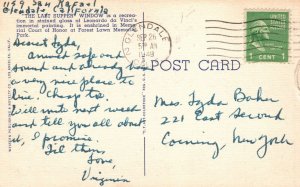 1159 San Rafael
Glendale California
"THE LAST SUPPER" WINDOW is a recrea-
tion in stained glass of Leonardo da Vinci's
immortal painting. It is enshrined in Memo-
rial Court of Honor at Forest Lawn Memorial
Park.
Dearest Lyda,
Arrived safe and
sound and already have
a very nice place to
live. Cheap too.
Will write next week
and tell you all about
it, I promise.
Til then
Love,
Virginia
GLENDALE
SEP 26
AM
1949
1 CENT 1
POST CARD
Miss Lyda Baker
221 East Second
Corning, New York